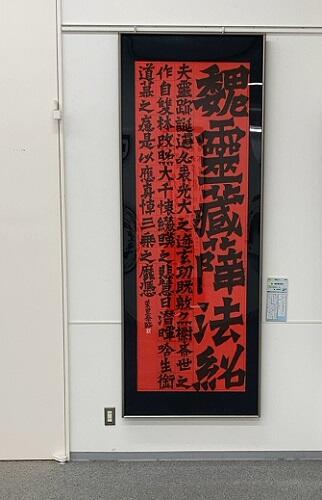 魏靈藏薛法紹
夫靈跡誕遘必表光大之迹玄功既敷亦標希世之
作自雙林改照大千懷綴暎之悲慧日潛暉唅生銜
道慕之痛是以應真悼三乘之靡憑